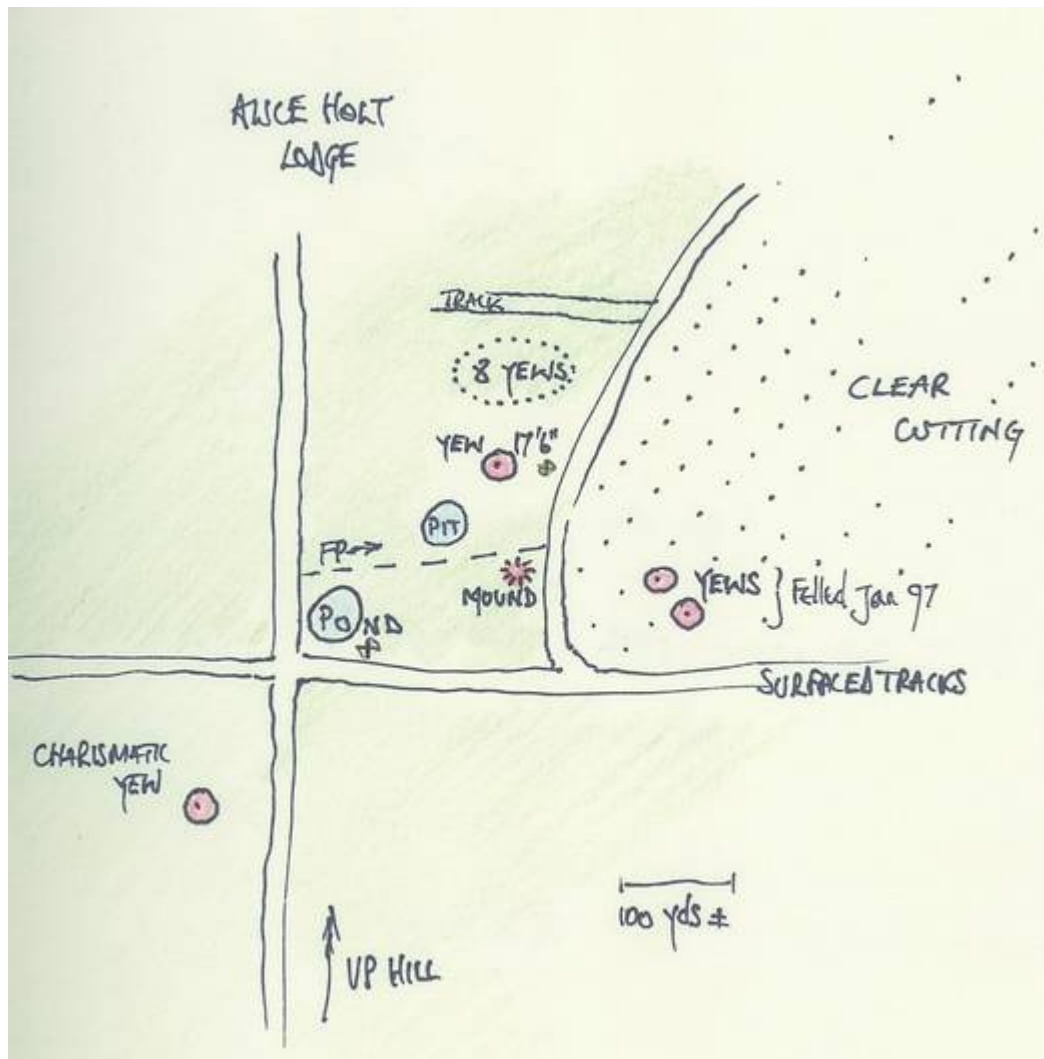 ALICE HOLT
LODGE
TRACK
8 YEWS
CLEAR
CUTTING
YEW 17'6"
PIT
FP→
MOUND
YEWS } Felled Jan 97
POND
SURFACED TRACKS
CHARISMATIC
YEW
100 yds ±
UP HILL